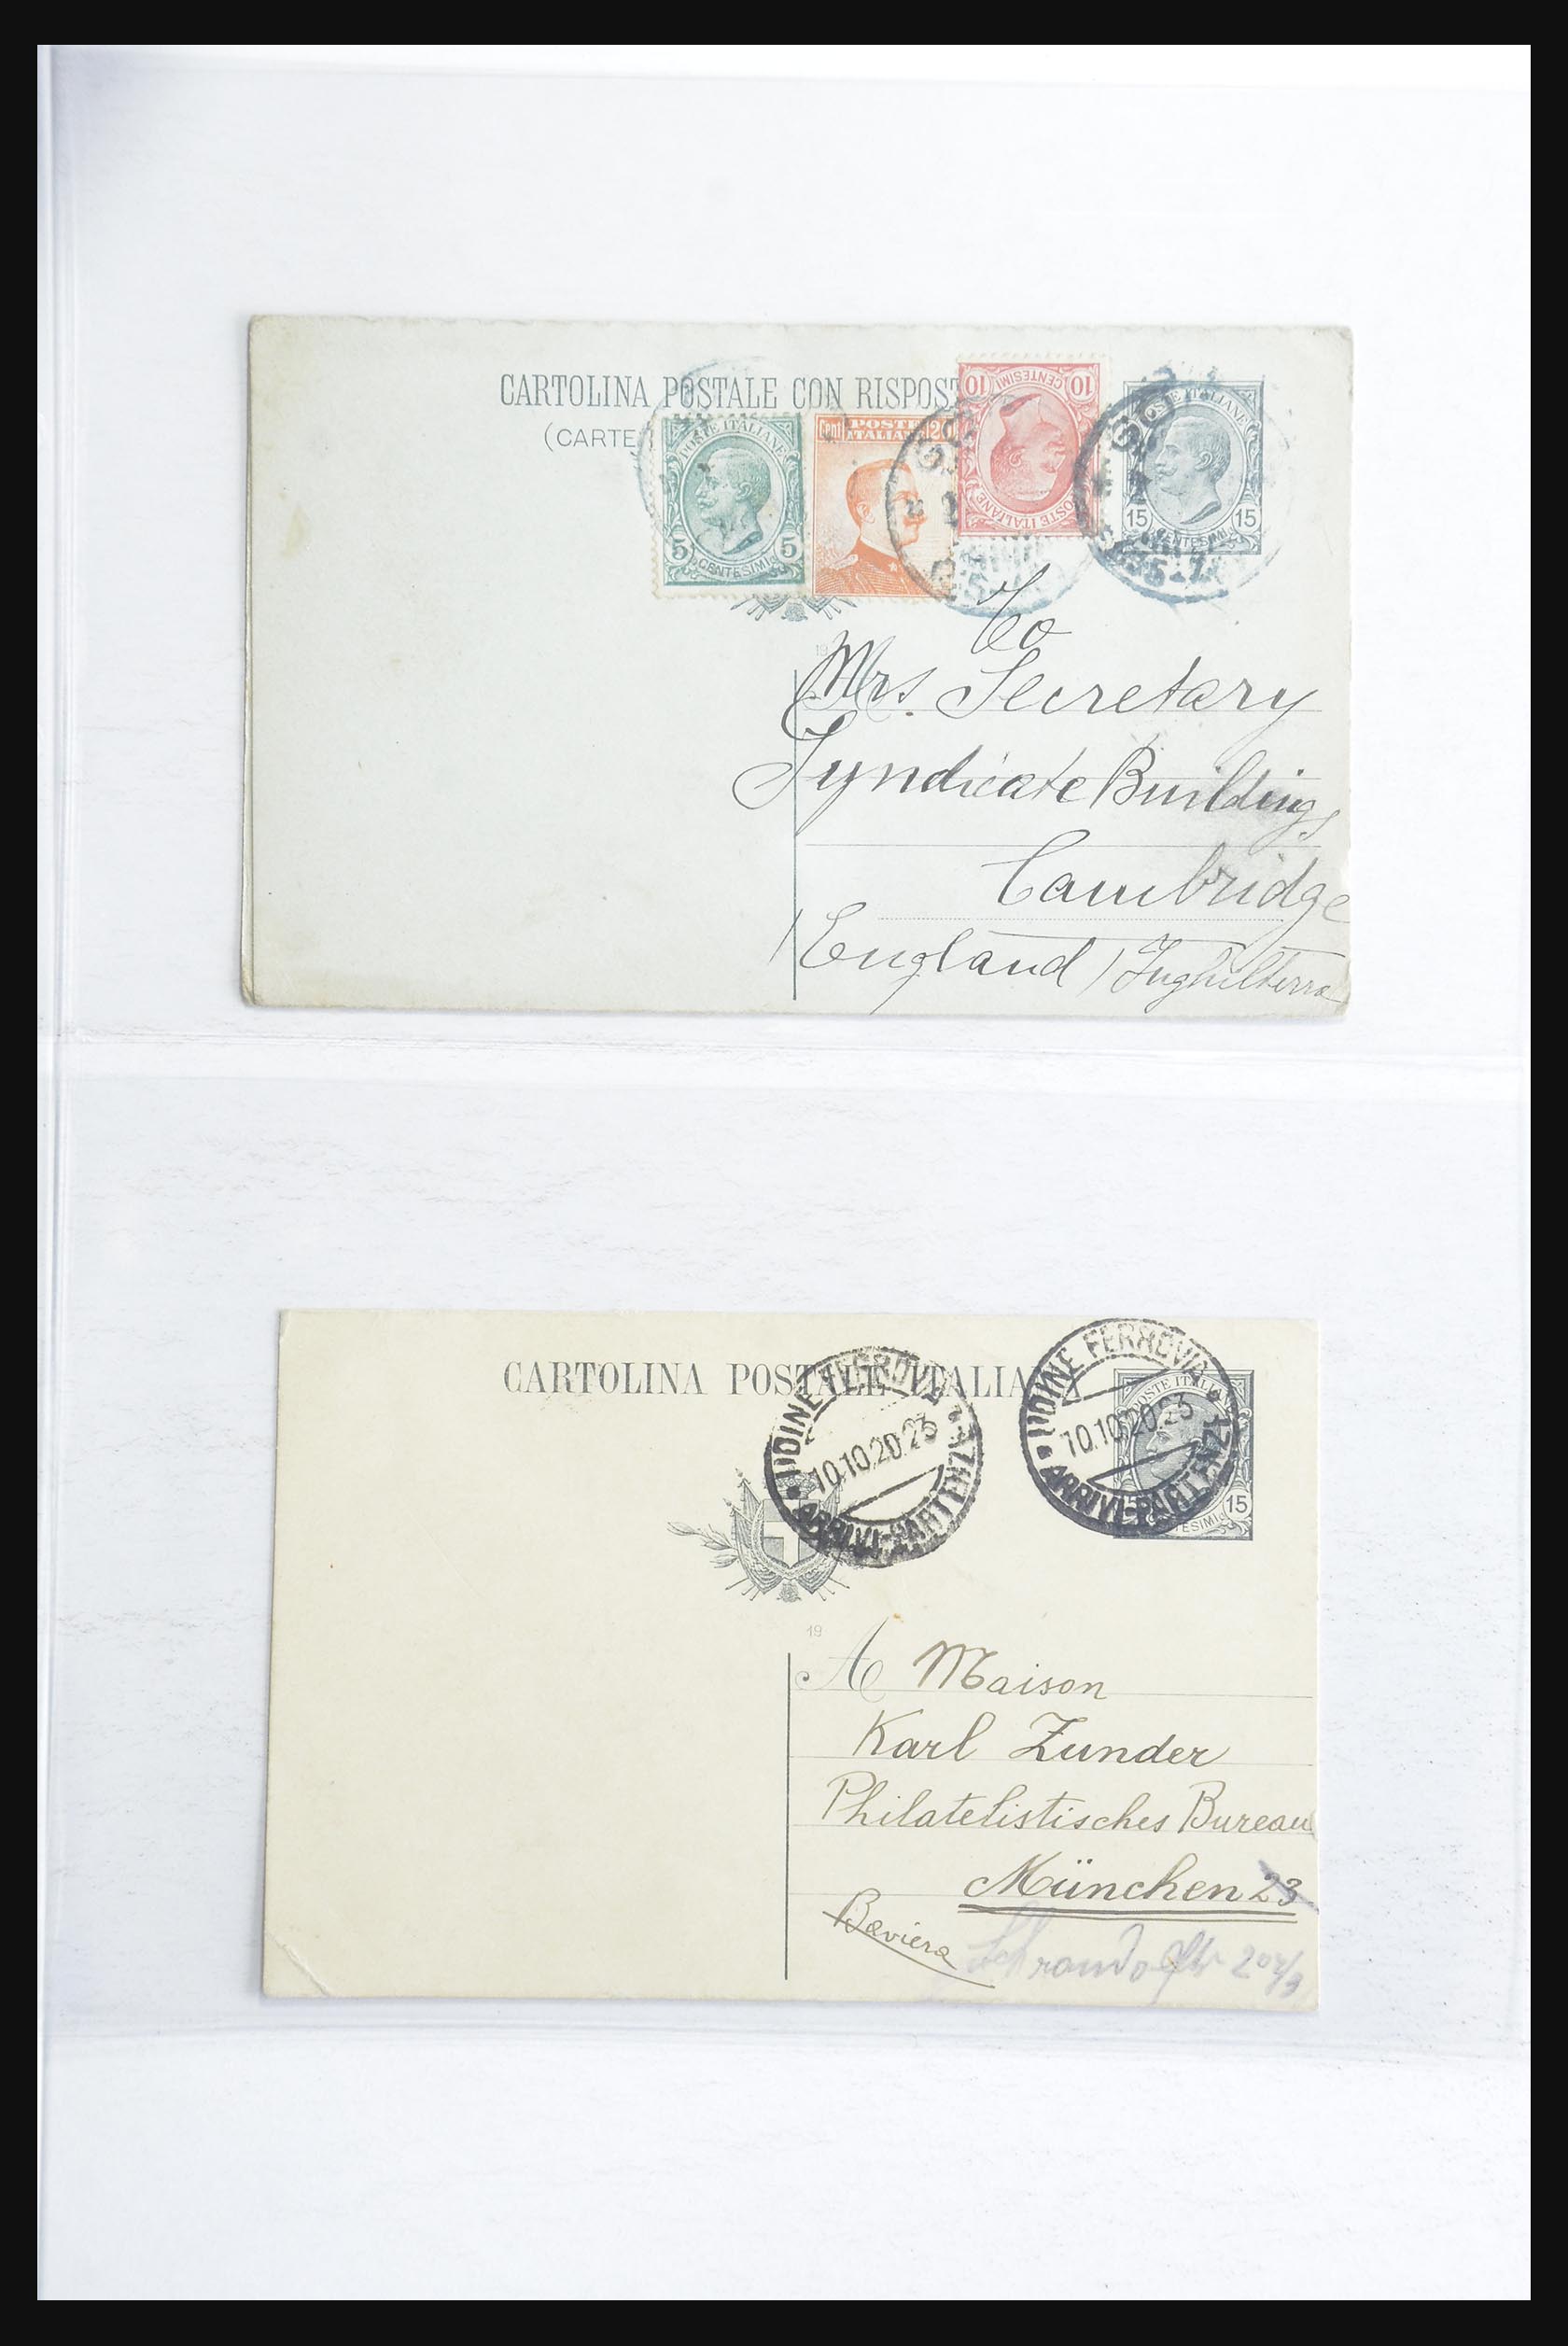 CARTOLINA POSTALE CON RISPOST
(CARTE
POSTE ITALIANE
5 5
CENTESIMI
Cent POSTE 20
ITALIANE
10 CENTESIMI 10
POSTE ITALIANE
POSTE ITALIANE
15 15
CENTESIMI
19
To
Mrs. Secretary
Syndicate Buildings
Cambridge
(England) Inghilterra
CARTOLINA POSTALE ITALIANA
UDINE FERROVIA
10.10.20.23
ARRIVI-PARTENZE
UDINE FERROVIA
10.10.20.23
ARRIVI-PARTENZE
POSTE ITAL
15
19
A Maison
Karl Zunder
Philatelistisches Bureau
München 23
Baviera